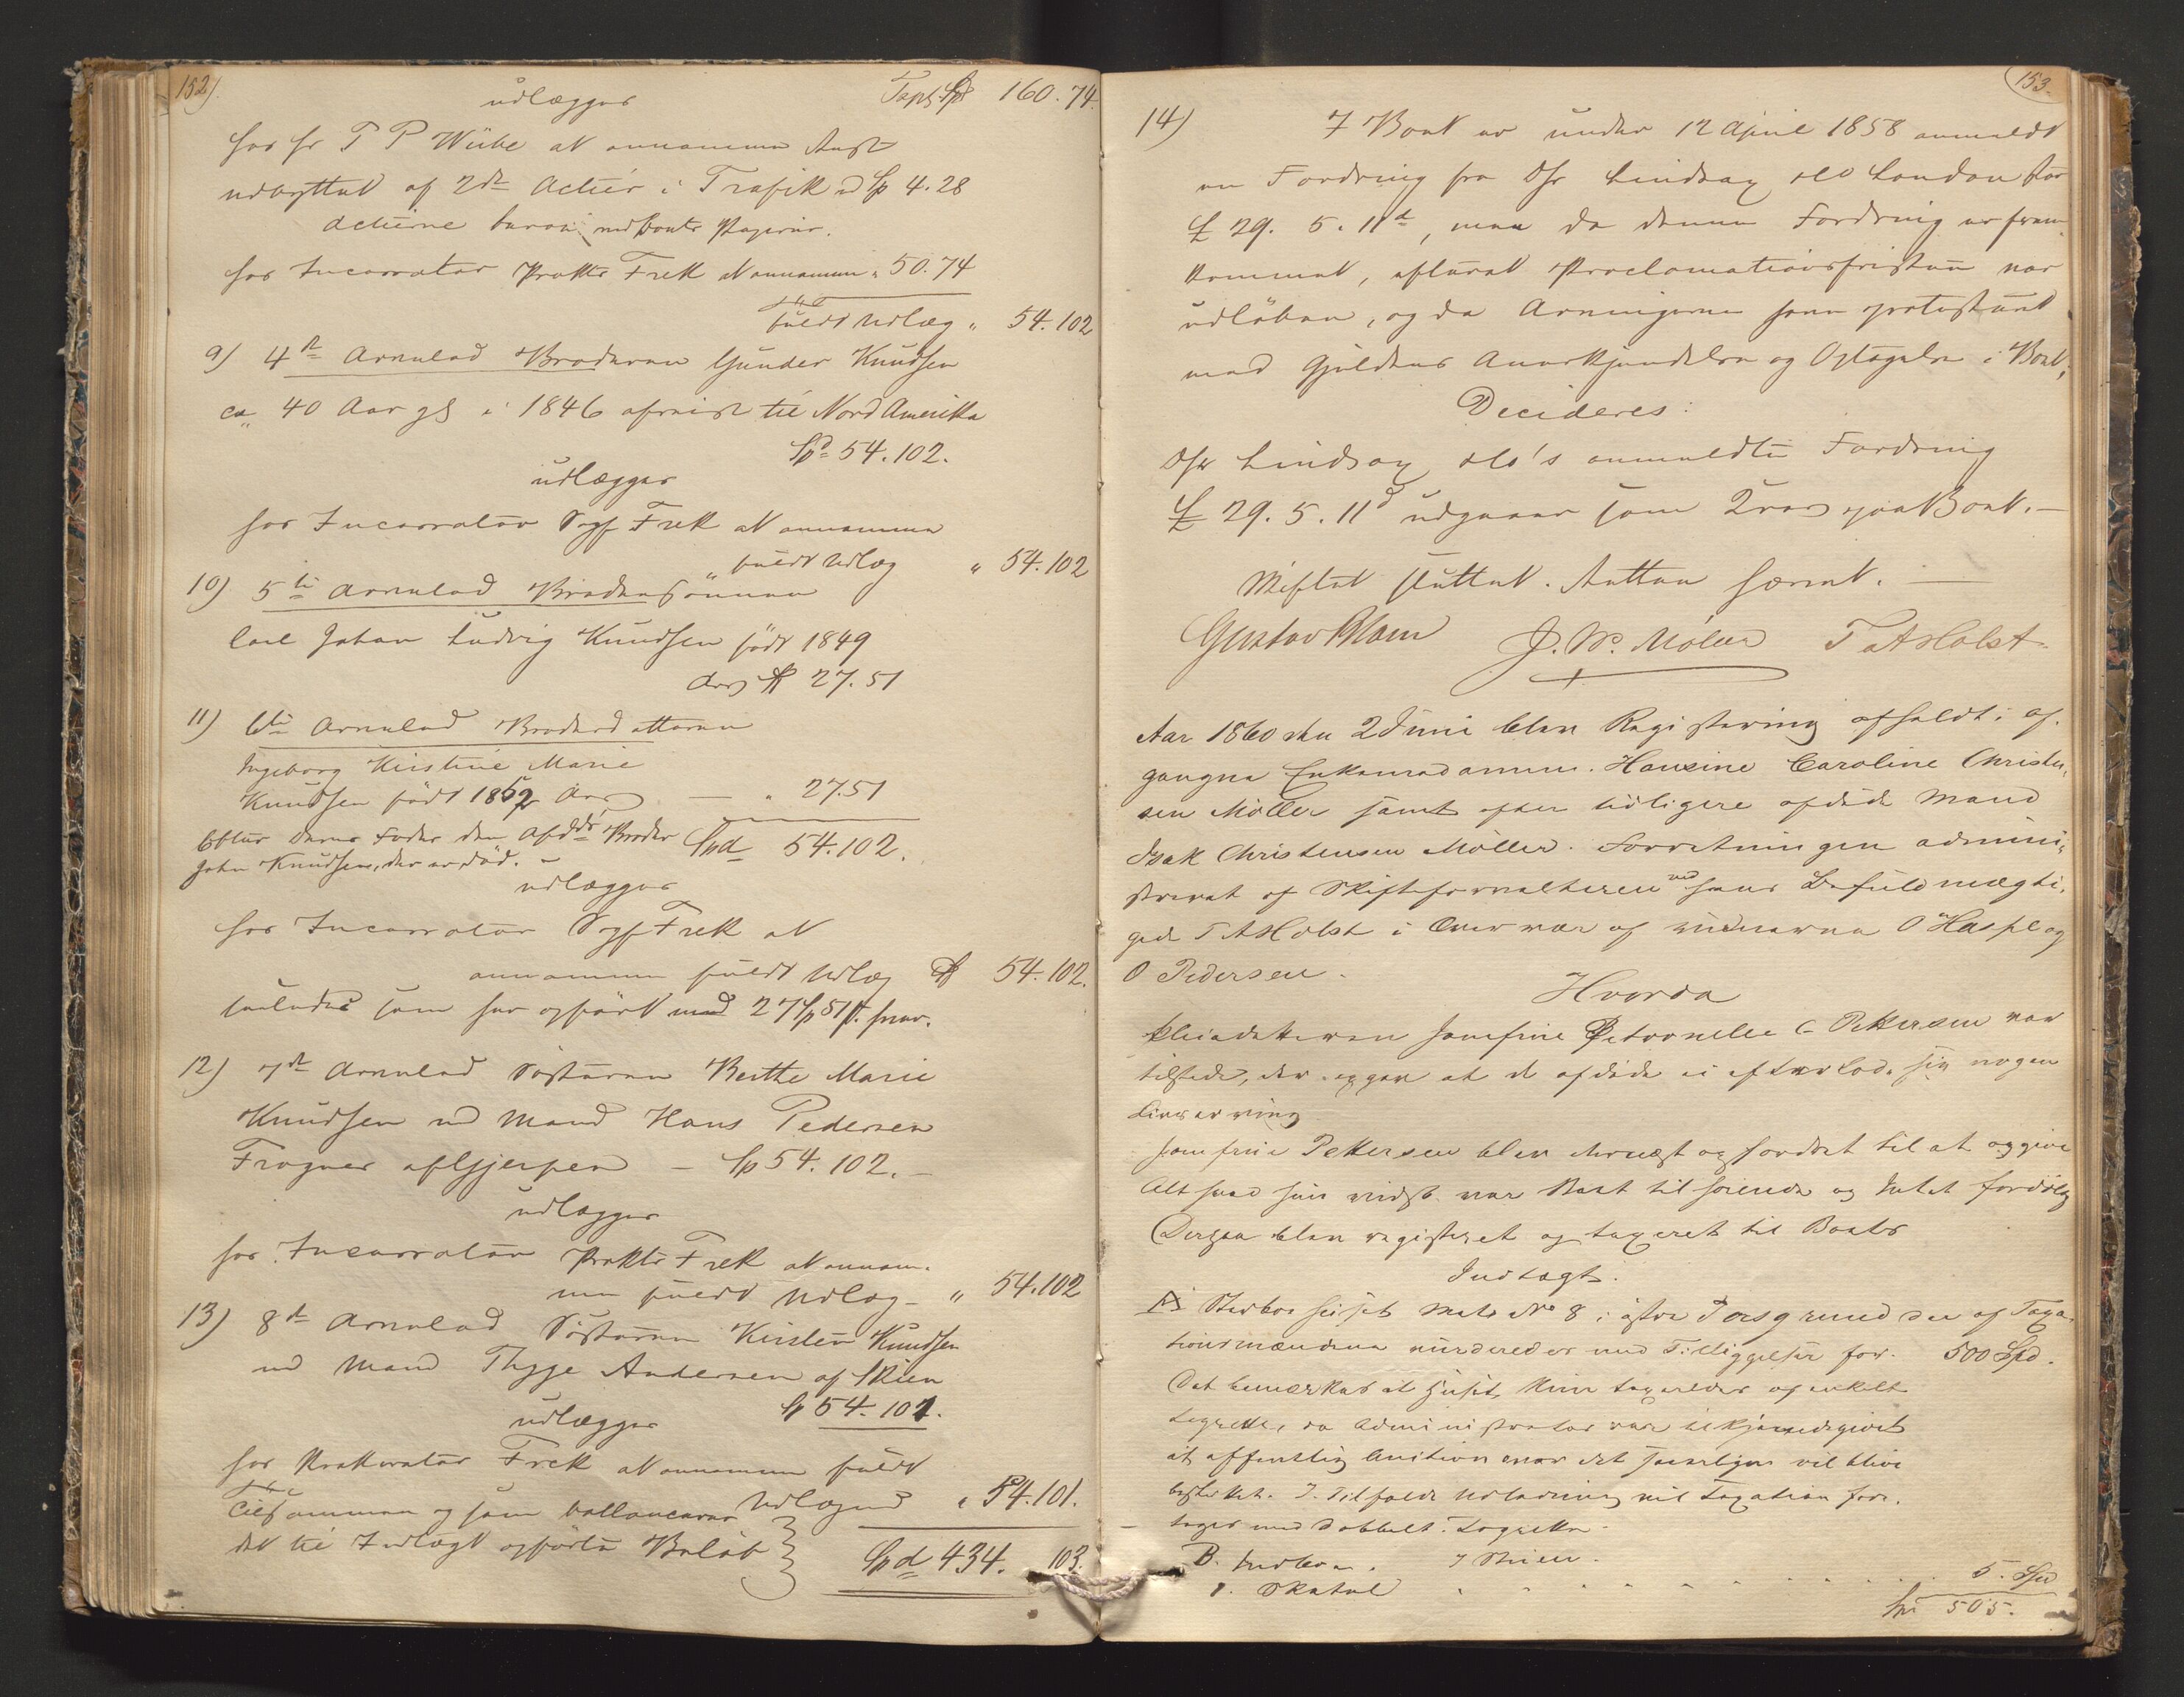 152).
Tspt. Sp 160.74.
udlægges
hos Hr T P Wiibe at annamme Aust
udbyttet af 2de Actier i Trafik ... Sp 4.28
Actierne beror ved Boets Papirer.
hos Incassator Prokts Frek at annamme " 50.74
fuldt Udlæg " 54.102
9) 4de Arvelod Broderen Gunder Knudsen
ca 40 Aar gl i 1846 afreist til Nord Amerika
Spd 54.102.
udlægges
hos Incassator Sgf Frek at annamme
fuldt Udlæg " 54.102
10) 5te Arvelod Brodersønnen
Carl Johan Ludvig Knudsen født 1849
Arv 27.51
11) 6te Arvelod Broderdatteren
Ingeborg Kirstine Marie
Knudsen født 1852 Arv — " 27.51
Efter deres Fader den Afdødes Broder Spd 54.102.
John Knudsen, der er død. —
udlægges
hos Incassator Sgf Frek at
annamme fuldt Udlæg 54.102.
saaledes som her opført med 27 Sp 51 s. hver.
12) 7de Arvelod Søsteren Berthe Marie
Knudsen ved Mand Hans Pedersen
Frogner af Gjerpen — Sp 54.102. —
udlægges
hos Incassator Prokts Frek at annam-
me fuldt Udlæg — " 54.102
13) 8de Arvelod Søsteren Kirsten Knudsen
ved Mand Thyge Andersen af Skien
Sp 54.101.
udlægges
hos Prokurator Frek at annamme fuldt
Udlægend " 54.101.
Tilsammen og som ballancerer
det til Indtægt opførte Beløb } Spd 434. 103.
153.
14) I Boet er under 12 April 1858 anmeldt
en Fordring fra DHr Lindsay & Co London stor
£ 29. 5. 11d, men da denne Fordring er frem-
kommet, efterat Proclamationsfristen var
udløben, og da Arvingerne have protesteret
mod Gjeldens Anerkjendelse og Optagelse i Boet,
Decideres:
DHr Lindsay & Co's anmeldte Fordring
£ 29. 5. 11d udgaaer som Krav paa Boet. —
Skiftet sluttet. Retten hævet. —
Gustav Blom J. W. Møller T A Holst
Aar 1860 den 2 Juni blev Registering afholdt i af-
gangne Enkemadamme Hansine Caroline Christen-
sen Møller samt efter tidligere afdøde Mand
Isak Christensen Møller. Forretningen admini-
streret af Skifteforvalteren ved hans Befuldmægti-
gede T A Holst i Overvær af vidnerne O Haspe og
O Pedersen.
Hvorda
Pleiedatteren Jomfrue Petronelle C Pettersen var
tilstede, der opgav at de afdøde ei efterlod sig nogen
Livsarving
Jomfrue Pettersen blev dernæst opfordret til at opgive
Alt hvad hun vidste var Boet tilhørende og Intet fordølge
Derpaa blev registeret og taxeret til Boets
Indtægt.
A) Stervboe huset Mats No 8 i østre Porsgrund der af Taxa-
tionsmændene vurderedes med Tilliggelser for 500 Spd.
Det bemærkes at huset kun taxeredes af enkelt
Lagrette, da Administrator var tilkjendegivet
at offentlig Auction over det sandsynligen vil blive
besluttet. I Tilfælde Udlodning vil Taxation fore-
tages med dobbelt Lagrette.
B. Indboe. I Stuen.
1. Skatul " " " " " 5. Spd
Spd 505.